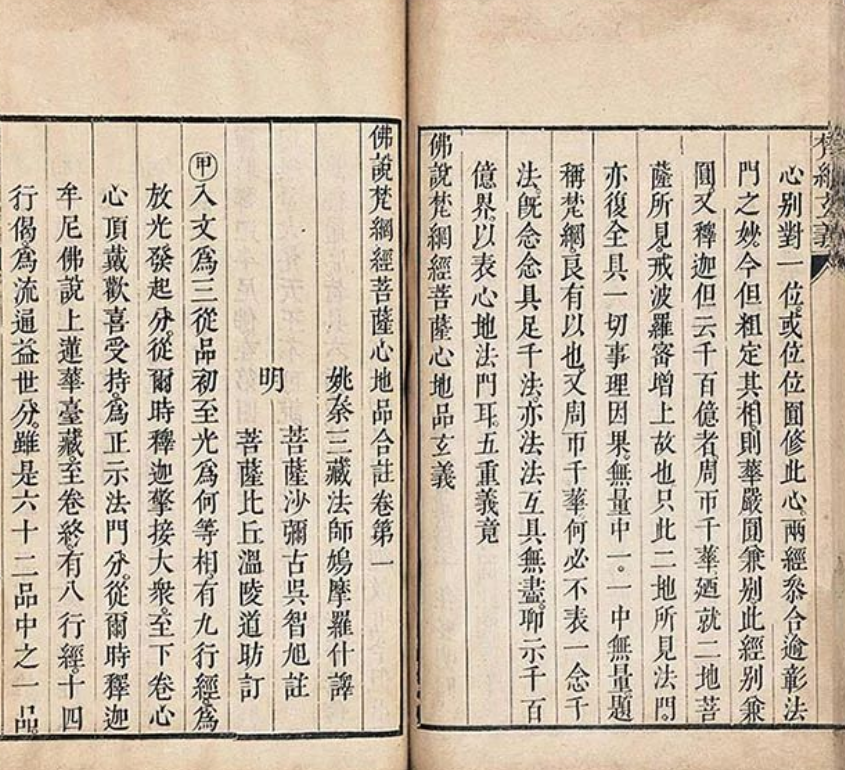 梵網玄義
心別對一位。或位位圓修此心。兩經叅合逾彰法
門之妙。今但粗定其相。則華嚴圓兼別此經別兼
圓又釋迦但云千百億者。周帀千華廼就二地菩
薩所見戒波羅密增上故也只此二地所見法門。
亦復全具一切事理因果。無量中一。一中無量。題
稱梵網良有以也。又周帀千華何必不表一念千
法。旣念念具足千法。亦法法互具無盡。聊示千百
億界。以表心地法門耳。五重義竟
佛說梵網經菩薩心地品玄義
佛說梵網經菩薩心地品合註卷第一
姚秦三藏法師鳩摩羅什譯
菩薩沙彌古吳智旭註
明
菩薩比丘溫陵道昉訂
㊙甲入文爲三從品初至光爲何等相。有九行經。爲
放光發起分。從爾時釋迦擎接大衆。至下卷心
心頂戴歡喜受持。爲正示法門分。從爾時釋迦
牟尼佛說上蓮華臺藏。至卷終。有八行經。十四
行偈。爲流通益世分。雖是六十二品中之一品。